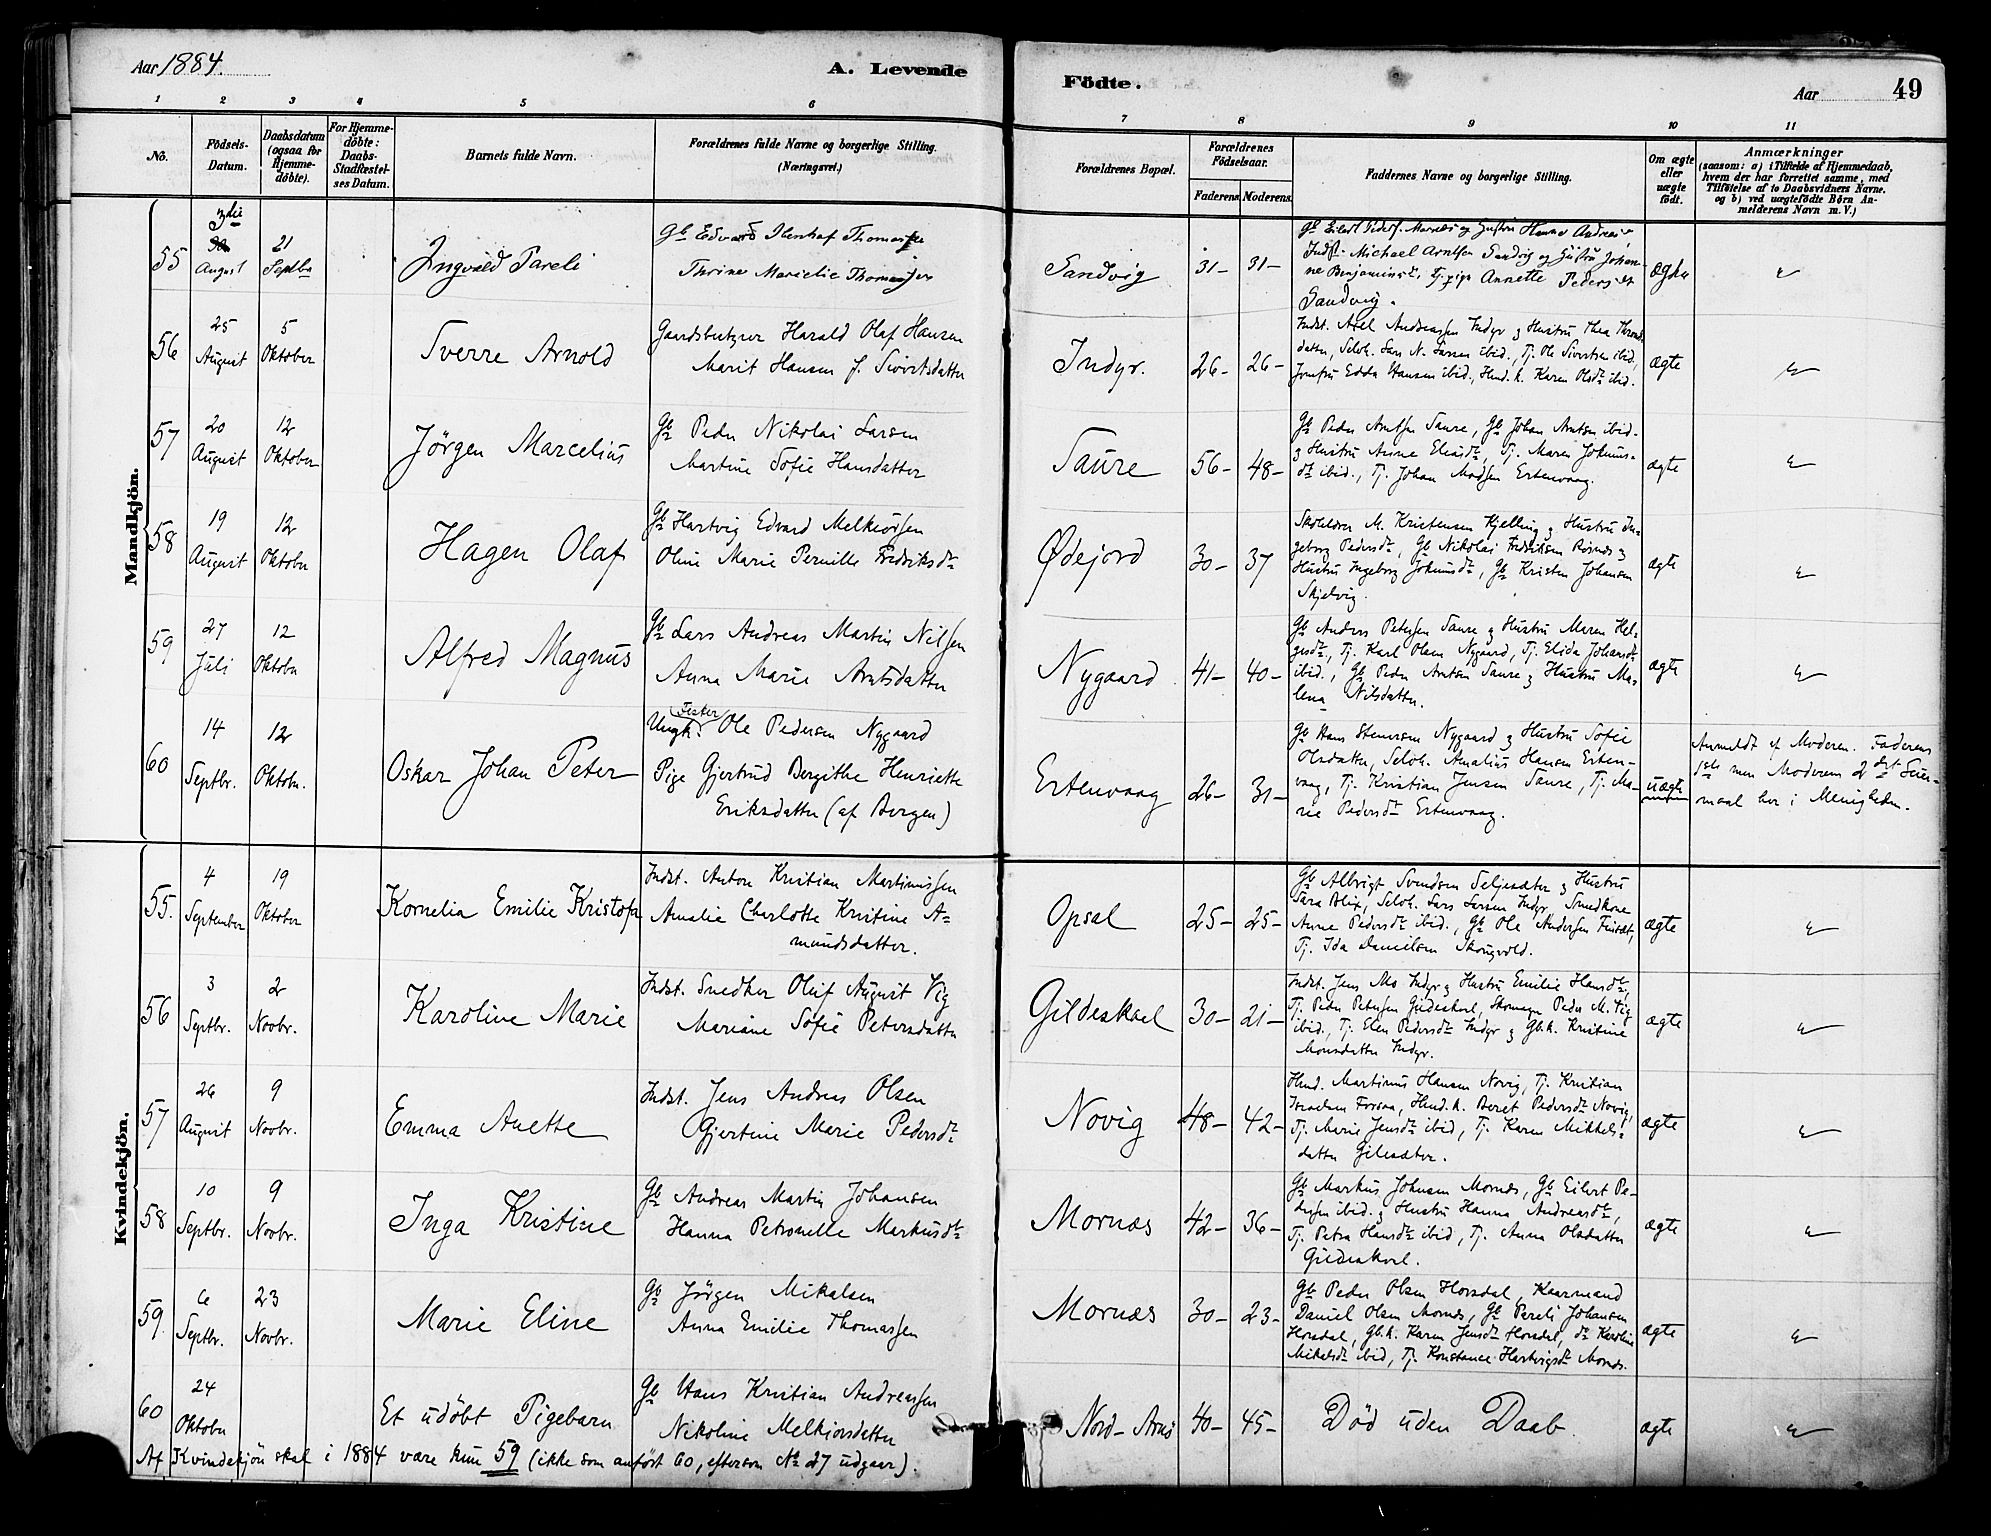 Aar 1884.
A. Levende
Födte.
Aar
49
1 2 3 4 5 6 7 8 9 10 11
No.
Födsels-Datum.
Daabsdatum (ogsaa for Hjemme-döbte).
For Hjemme-döbte: Daabs-Stadfæstel-ses Datum.
Barnets fulde Navn.
Forældrenes fulde Navne og borgerlige Stilling. (Næringsvei.)
Forældrenes Bopæl.
Forældrenes Födselsaar.
Faderens. Moderens.
Faddernes Navne og borgerlige Stilling.
Om ægte eller uægte födt.
Anmærkninger
(saasom: a) i Tilfælde af Hjemmedaab,
hvem der har forrettet samme, med
Tilföielse af to Daabsvidners Navne.
og b) ved uægtefödte Börn An-
melderens Navn m. V.)
Mandkjön.
55 August 21 Septbr Ingvald Pareli
Thrine Marielie Thomassen
Sandvig 31- 31-
Michael Arntsen Sandvig og Hustru Johan-
ne Annette Peders
Sandvig.
56 25 August 5 Oktober Sverre Arnold
Gaardbruger Harald Olaf Hansen
Marit Hansen f. Sivertsdatter
Indyr. 26- 26-
Indst. Axel Andreassen Indyr & Hustru Thea Thrond-
datter, Selvh. Lars N. Larsen ibid., Tj. Ole Sivertsen ibid,
Jomfru Edda Hansen ibid., Hmd. k. Karen Olsdr ibid.
ægte
57 20 August 12 Oktober Jörgen Marcelius
Gb Peder Nikolai Larsen
Martine Sofie Hansdatter
Saure 56- 48-
Gb Peder Arntsen Saure, Gb Johan Arntsen ibid.
& Hustru Anne Eliasdr, Tj. Maren Jokums-
dr ibid., Tj. Johan Madsen Ertenvaag.
ægte
58 19 August 12 Oktober Hagen Olaf
Gb Hartvig Edvard Melkiorsen
Oline Marie Pernille Fredriksdr
Ødejord 30- 37
Skolelærer M. Kristensen Kjelling & Hustru In-
geborg Pedersdr, Gb Nikolai Fredriksen Rosnes &
Hustru Ingeborg Jokumsdr, Gb Kristen Johansen
Skjelvig.
ægte
59 27 Juli 12 Oktober Alfred Magnus
Gb Lars Andreas Martin Nilsen
Anna Marie Arntsdatter
Nygaard 41- 40-
Gb Anders Petersen Saure & Hustru Maren Hel-
gesdr, Tj. Karl Olsen Nygaard, Tj. Elida Johansdr
ibid., Gb Peder Arntsen Saure & Hustru Ma-
lena Nilsdatter.
ægte
60 14 Septbr. 12 Oktobr. Oskar Johan Peter
Ungk. Ole Pedersen Nygaard
Pige Gjertrud Bergithe Henriette
Eriksdatter (af Bergen)
Ertenvaag 26- 31-
Gb Hans Stensen Nygaard & Hustru Sofie
Olsdatter, Selvh. Amalius Hansen Erten-
vaag, Tj. Kristian Jensen Saure, Tj. Ma-
rie Pedersdr Ertenvaag.
uægte
Anmeldt af Moderen. Faderens
1ste men Moderens 2det Leier-
maal her i Menigheden.
Kvindekjön.
55. 4 September 19 Oktober Kornelia Emilie Kristofa
Indst. Anton Kristian Martinussen
Amalie Charlotte Kristine A-
mundsdatter.
Opsal 25- 25-
Gb Albrigt Svendsen Seljesæter & Hustru
Sara Blix, Selvh. Lars Larsen Indyr, Smedkone
Anne Pedersdr ibid., Gb Ole Andersen Finsæt,
Tj. Ida Danielsen Skougvold.
ægte
56 3 Septbr. 2 Novbr. Karoline Marie
Indst. Snedker Oluf August Vig
Mariane Sofie Petersdatter
Gildeskaal 30- 21-
Indst. Jens Mo Indyr & Hustru Emilie Hansdr,
Tj. Peder Petersen Gildeskaal, Skomager Peder M. Vig
ibid., Tj. Elen Pedersdr Indyr & Gb.k. Kristine
Monsdatter Indyr.
ægte
57 26 August 9 Novbr. Emma Anette
Indst. Jens Andreas Olsen
Gjertine Marie Pedersdr
Novig 48- 42-
Hmd. Martinus Hansen Novig, Tj. Kristian
Israelsen Forsaa, Hmd. k. Beret Pedersdr Novig,
Tj. Marie Jensdr ibid, Tj. Karen Mikkels-
datter Gilesæter.
ægte
58 10 Septbr. 9 Novbr. Inga Kristine
Gb Andreas Martin Johansen
Hanna Petronelle Markusdr
Mornæs 42- 36-
Gb Markus Johnsen Mornæs, Gb Eilert Pe-
dersen ibid. & Hustru Hanna Andreasdr,
Tj. Petra Hansdr ibid, Tj. Anna Olsdatter
Gildeskaal.
ægte
59. 6 Septbr. 23 Novbr. Marie Eline
Gb Jörgen Mikalsen
Anna Emilie Thomassen
Mornæs 30- 23-
Gb Peder Olsen Horsdal, Kaarmand
Daniel Olsen Mornæs, Gb Pareli Johansen
Horsdal, Gb.k. Karen Jensdr Horsdal, do Karoline
Mikalsdr ibid, Tj. Konstance Hartvigsdr Mornæs.
ægte
60 24 Oktober Et udöbt Pigebarn
Gb Hans Kristian Andreassen
Nikoline Melkiorsdatter
Nord-Arnø 40- 45-
Död uden Daab.
ægte
Af Kvindekjön skal i 1884 være kun 59 (ikke som anfört 60, eftersom No 27 udgaar).